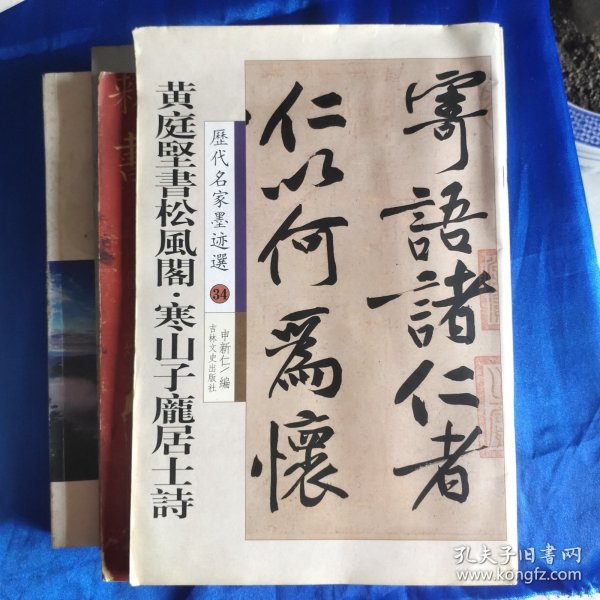 黄庭堅書松風閣·寒山子龐居士詩
歷代名家墨迹選
34
申新仁/編
吉林文史出版社
寄語諸仁者
仁以何爲懷
孔夫子旧书网
www.kongfz.com